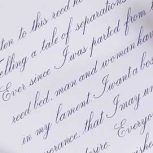 ten to this reed
Telling a tale of separations
Ever since I was parted from
reed bed, man and woman have
in my lament. I want a bos
verance, that I may un
desire. Everyo